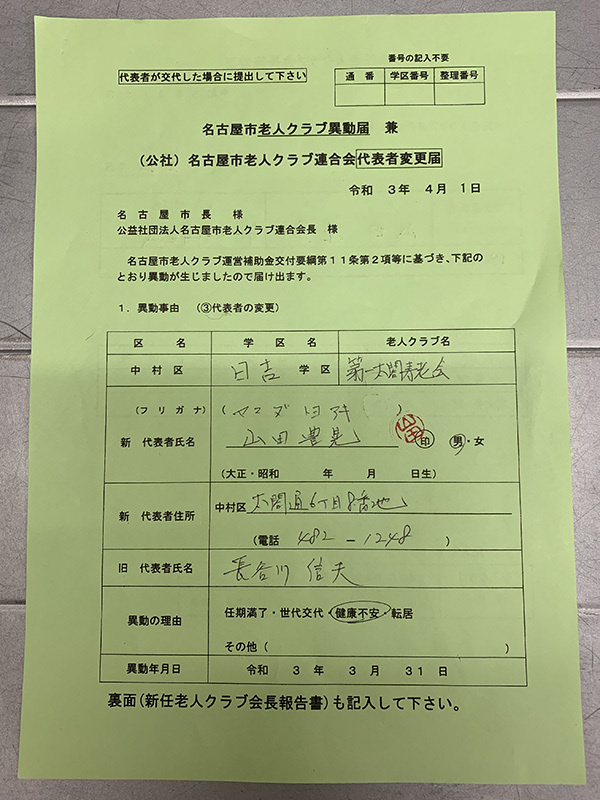 番号の記入不要
代表者が交代した場合に提出して下さい
通番 学区番号 整理番号
名古屋市老人クラブ異動届 兼
（公社）名古屋市老人クラブ連合会代表者変更届
令和 3年 4月 1日
名古屋市長 様
公益社団法人名古屋市老人クラブ連合会長 様
名古屋市老人クラブ運営補助金交付要綱第11条第2項等に基づき、下記の
とおり異動が生じましたので届け出ます。
1. 異動事由 （③代表者の変更）
区名 学区名 老人クラブ名
中村区 日吉 学区 第一太閤寿老会
（フリガナ）（ ）
新 代表者氏名 山田豊晃 印 男・女
（大正・昭和 年 月 日生）
新 代表者住所 中村区 太閤通6丁目8番地
（電話 482-1248 ）
旧 代表者氏名 長谷川 信夫
異動の理由 任期満了・世代交代・健康不安・転居
その他（ ）
異動年月日 令和 3 年 3 月 31 日
裏面（新任老人クラブ会長報告書）も記入して下さい。